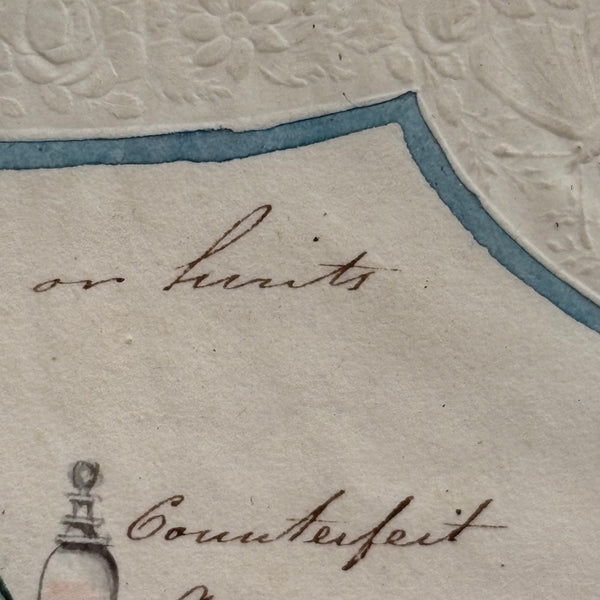 or hints
Counterfeit